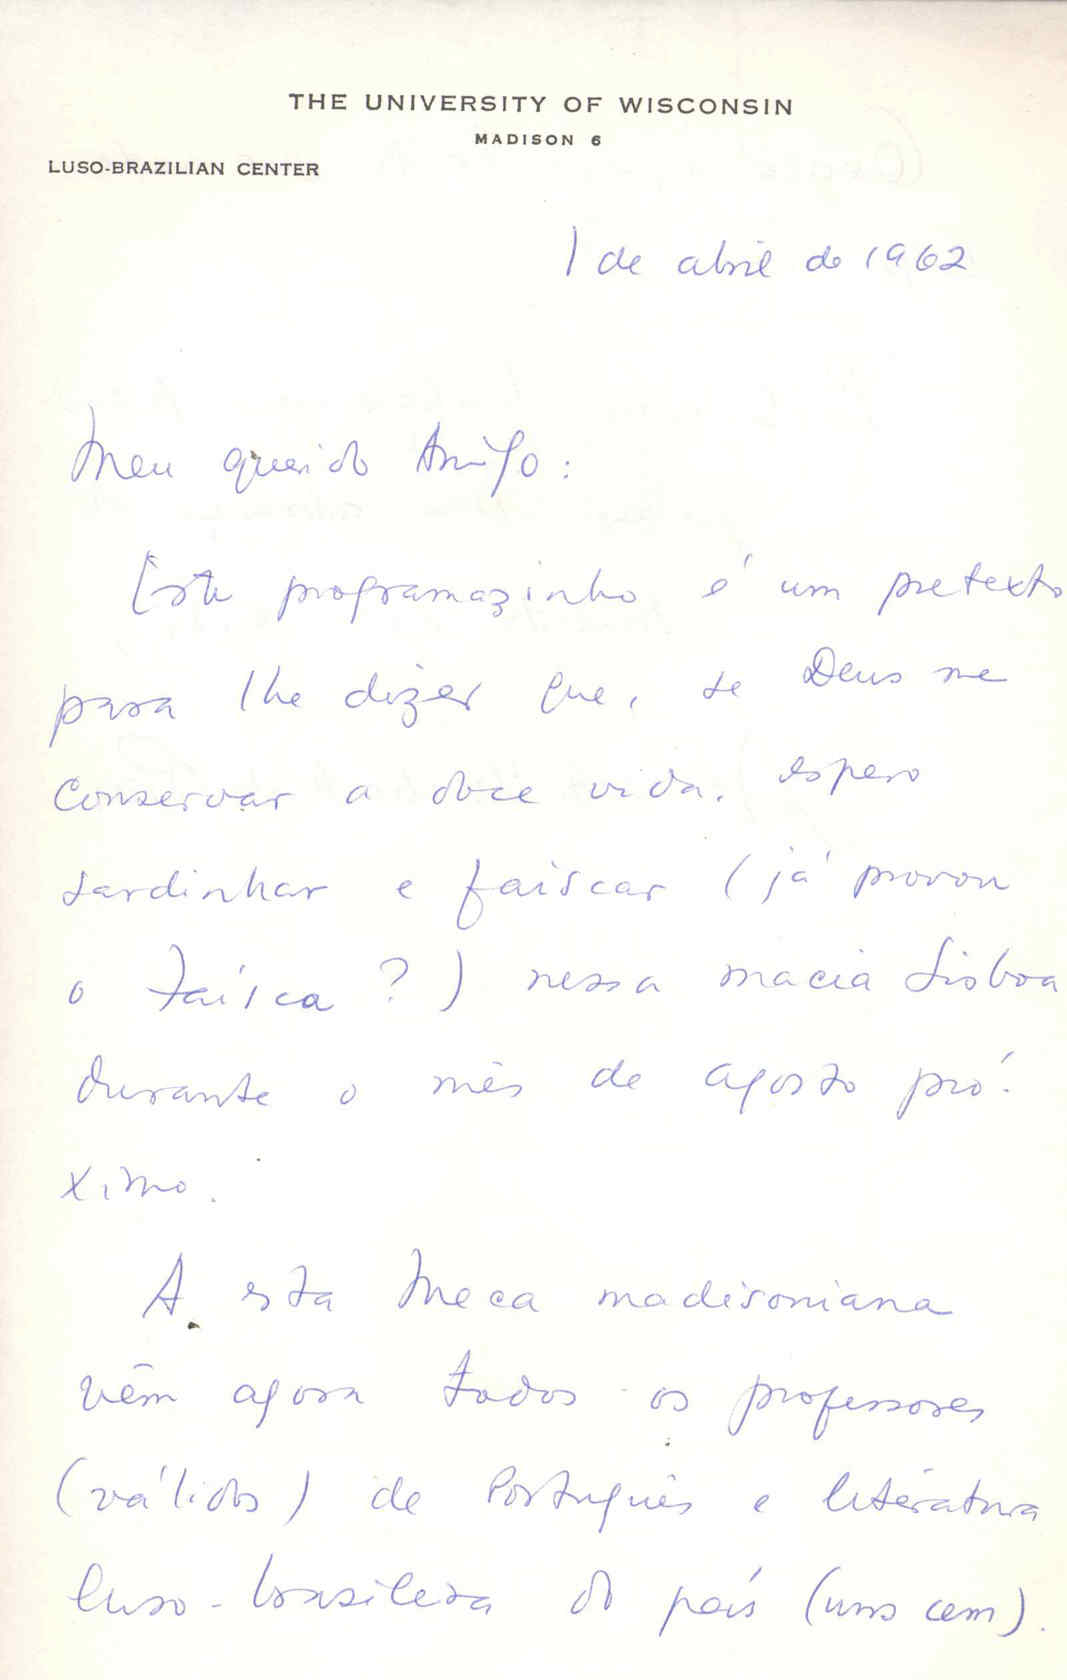 THE UNIVERSITY OF WISCONSIN
MADISON 6
LUSO-BRAZILIAN CENTER
1 de abril de 1962
Meu querido Amigo:
Este programazinho é um pretexto
para lhe dizer que, se Deus me
conservar a doce vida, espero
sardinhar e faiscar (já provou
o Faísca?) nessa macia Lisboa
durante o mês de agosto pró-
ximo.
A esta Meca madisoniana
vêm agora todos os professores
(válidos) de Português e literatura
luso-brasileira do país (uns cem).